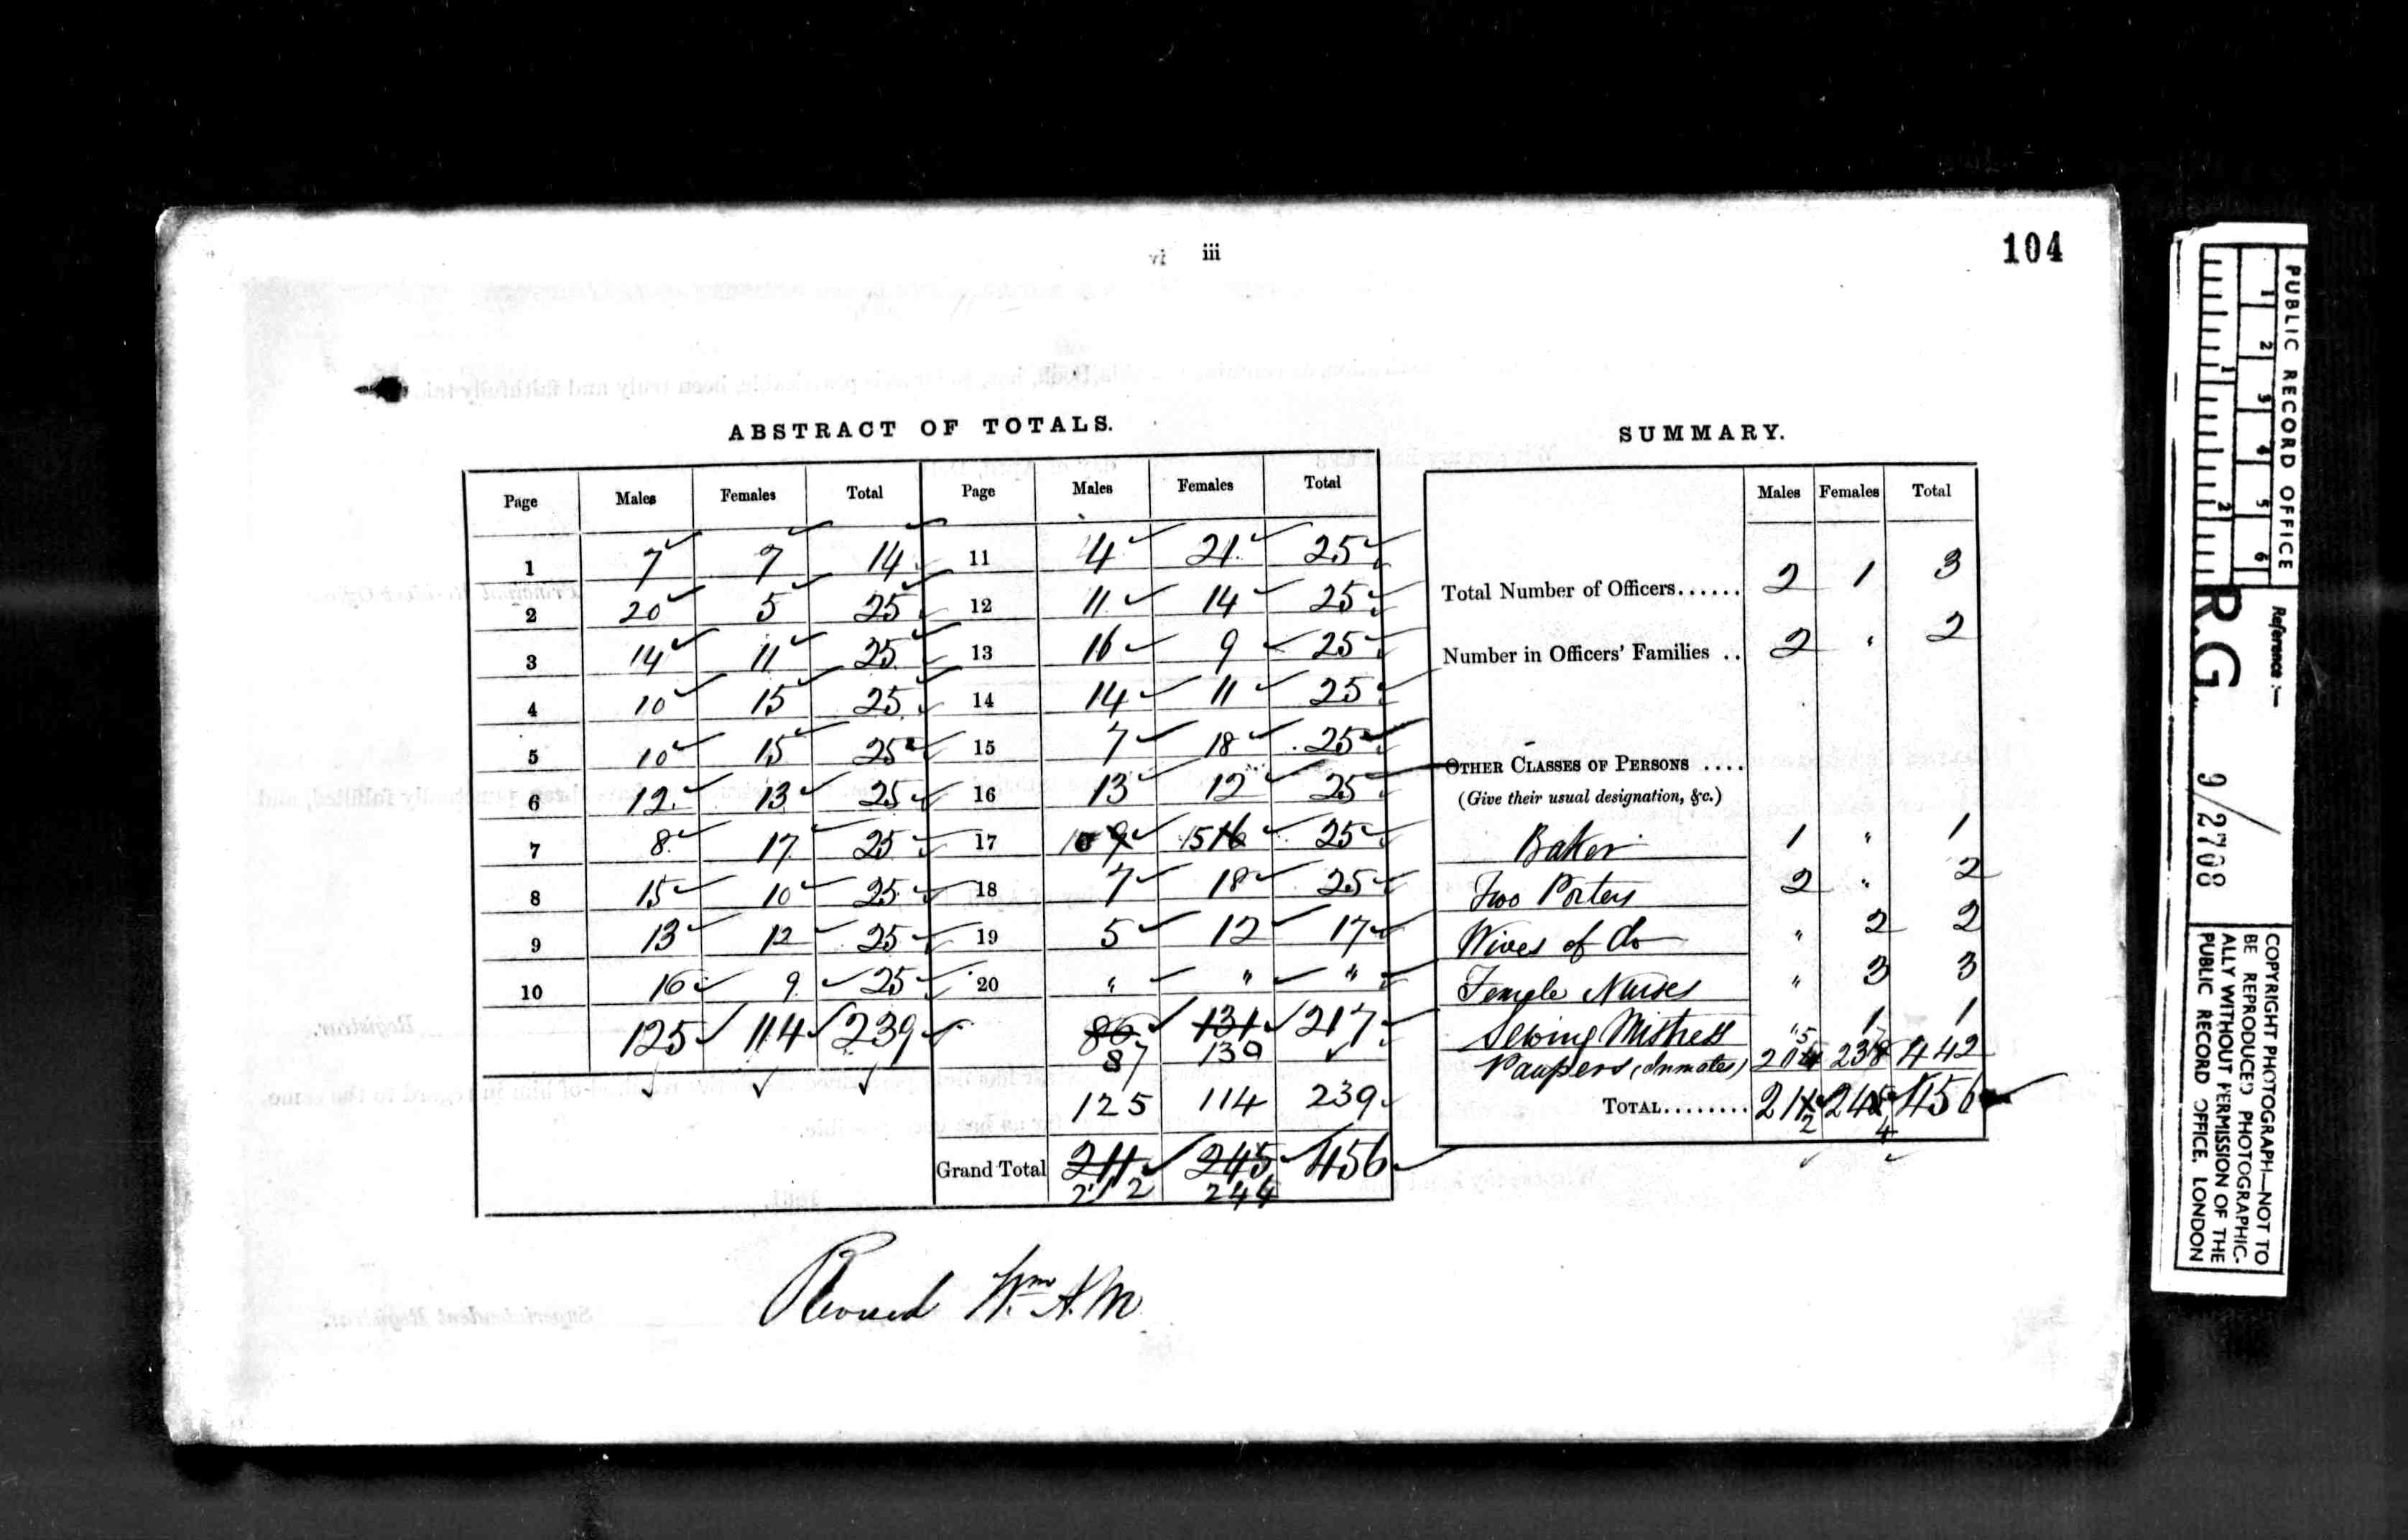 iii
104
ABSTRACT OF TOTALS.
Page Males Females Total Page Males Females Total
1 7 7 14 11 4 21 25
2 20 5 25 12 11 14 25
3 14 11 25 13 16 9 25
4 10 15 25 14 14 11 25
5 10 15 25 15 7 18 25
6 12 13 25 16 13 12 25
7 8 17 25 17 10 9 15 16 25
8 15 10 25 18 7 18 25
9 13 12 25 19 5 12 17
10 16 9 25 20 " " "
125 114 239 86 131 217
87 130
125 114 239
Grand Total 211 245 456
212 244
SUMMARY.
Males Females Total
Total Number of Officers...... 2 1 3
Number in Officers' Families .. 2 " 2
OTHER CLASSES OF PERSONS ....
(Give their usual designation, &c.)
Baker 1 " 1
Two Porters 2 " 2
Wives of do " 2 2
Female Nurses " 3 3
Sewing Mistress " 1 1
Paupers (Inmates) 204 5 238 7 442
TOTAL........ 211 245 456
2 4
Revised Wm. A. M
PUBLIC RECORD OFFICE
1 2 3 4 5 6
1 2
Reference :—
R.G. 9/2708
COPYRIGHT PHOTOGRAPH—NOT TO
BE REPRODUCED PHOTOGRAPHIC-
ALLY WITHOUT PERMISSION OF THE
PUBLIC RECORD OFFICE, LONDON